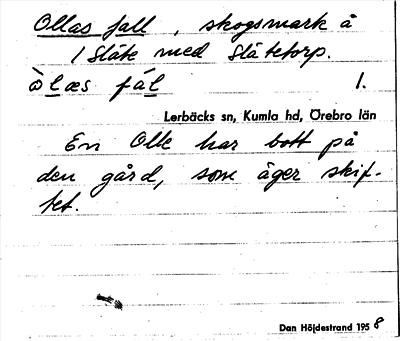 Ollas fall, skogsmark å
1 Slåte med Slåtetorp.
òlæs fál 1.
Lerbäcks sn, Kumla hd, Örebro län
En Olle har bott på
den gård, som äger skif-
tet.
Dan Höjdestrand 1958